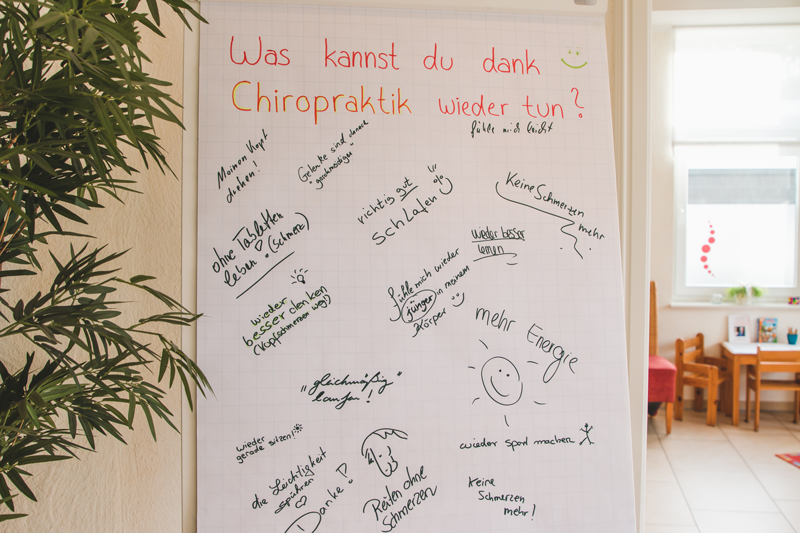 Was kannst du dank
Chiropraktik wieder tun?
fühle mich leicht
Meinen Kopf
drehen!
Gelenke sind danach
"geschmeidiger"
richtig gut
schlafen
Keine Schmerzen
mehr
ohne Tabletten
leben! (Schmerz)
wieder besser
lernen
wieder
besser denken
(Kopfschmerzen weg!)
fühle mich wieder
jünger in meinem
Körper
mehr Energie
"gleichmäßig"
laufen!
wieder
gerade sitzen!
wieder sport machen
die Leichtigkeit
spühren
Danke!
Reiten ohne
Schmerzen
keine
Schmerzen
mehr!